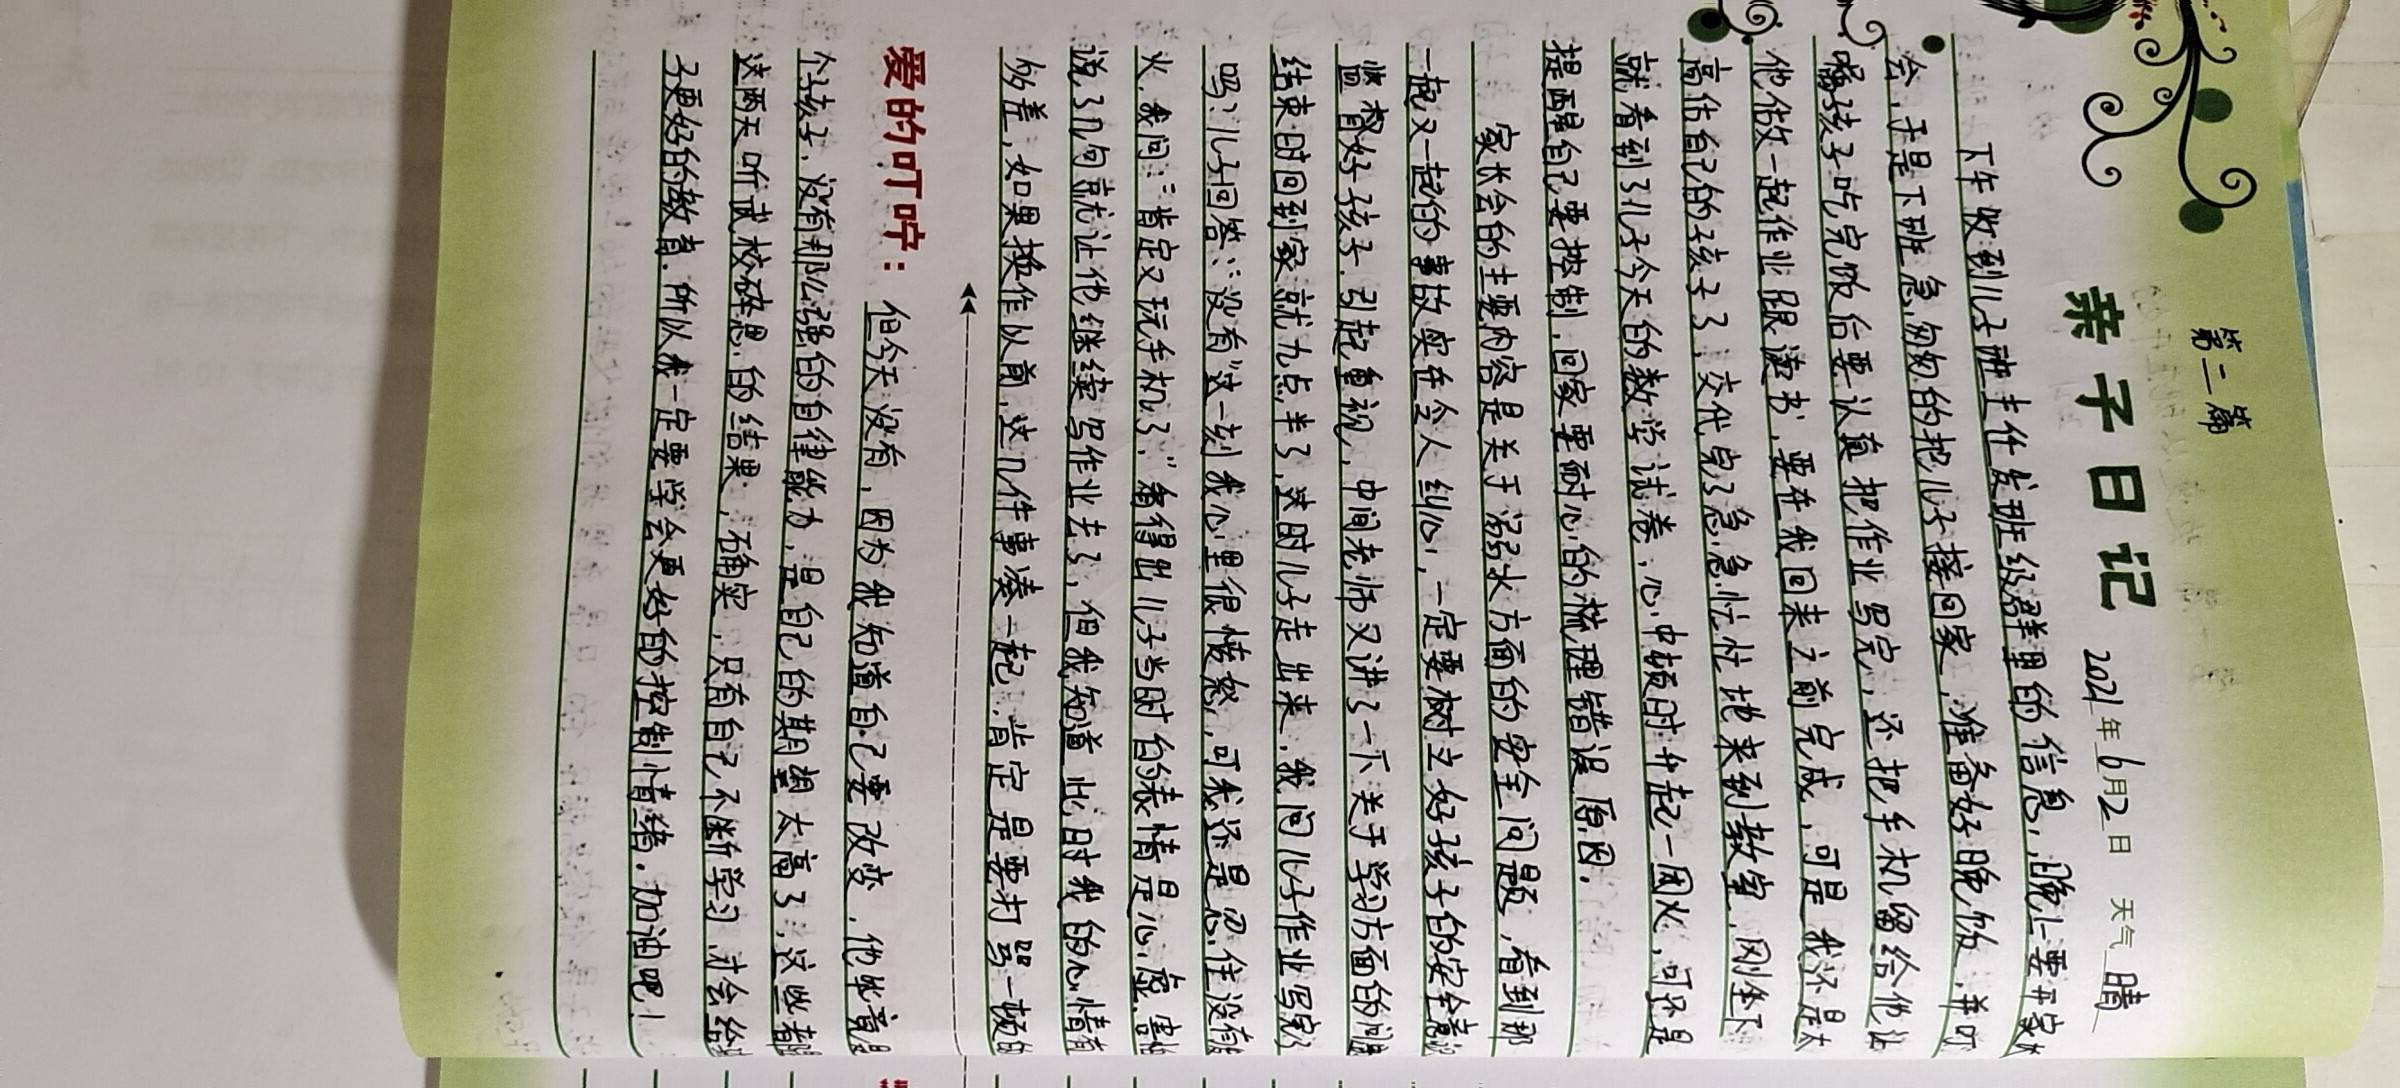 第二篇
亲子日记 2021年6月2日 天气 晴
下午收到儿子班主任发班级群里的信息，晚上要开家长
会，于是下班急匆匆的把儿子接回家，准备好晚饭，并叮
嘱孩子吃完饭后要认真把作业写完，还把手机留给他让
他做一起作业跟读书，要在我回来之前完成，可是我还是太
高估自己的孩子了，交代完了急急忙忙地来到教室，刚坐下
就看到了儿子今天的数学试卷，心中顿时升起一团火，可还是
提醒自己要控制，回家要耐心的梳理错误原因。
家长会的主要内容是关于溺水方面的安全问题，看到那
一起又一起的事故实在令人纠心，一定要树立好孩子的安全意识
监督好孩子，引起重视，中间老师又讲了一下关于学习方面的
结束时回到家就九点半了，这时儿子走出来，我问儿子作业写完了
吗？儿子回答："没有"这一刻我心里很愤怒，可我还是忍住没有
火，我问："肯定又玩手机了，"看得出儿子当时的表情是心虚，害怕
说了几句就让他继续写作业去了，但我知道此时我的心情有
多差，如果换作以前，这几件事凑一起，肯定是要打骂一顿的
爱的叮咛： 但今天没有，因为我知道自己要改变，他毕竟是
个孩子，没有那么强的自律能力，是自己的期望太高了，这些都
这两天听戒校碎思的结果，确实，只有自己不断学习，才会给
子更好的教育，所以我一定要学会更好的控制情绪，加油吧！